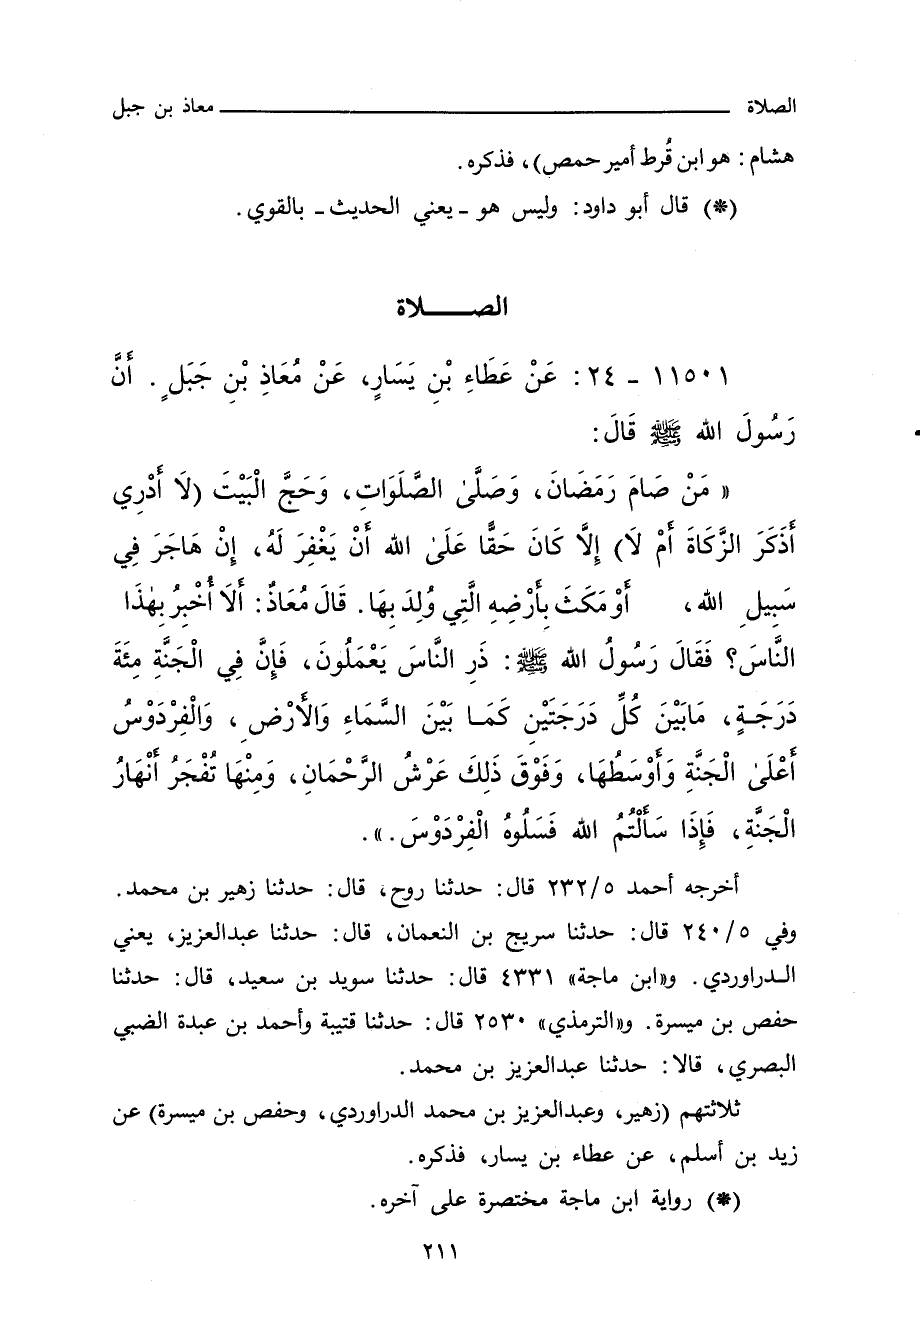 الصلاة ــــــــــ معاذ بن جبل
هشام : هو ابن قُرط أمير حمص) ، فذكره .
(*) قال أبو داود : وليس هو ـ يعني الحديث ـ بالقوي .
الصـــلاة
١١٥٠١ ـ ٢٤ : عَنْ عَطَاءِ بْنِ يَسَارٍ، عَنْ مُعَاذِ بْنِ جَبَلٍ . أَنَّ
رَسُولَ الله ﷺ قَالَ :
« مَنْ صَامَ رَمَضَانَ ، وَصَلَّىٰ الصَّلَوَاتِ ، وَحَجَّ الْبَيْتَ (لَا أَدْرِي
أَذَكَرَ الزَّكَاةَ أَمْ لَا) إِلَّا كَانَ حَقًّا عَلَىٰ الله أَنْ يَغْفِرَ لَهُ ، إِنْ هَاجَرَ فِي
سَبِيلِ الله ، أَوْ مَكَثَ بِأَرْضِهِ الَّتِي وُلِدَ بِهَا . قَالَ مُعَاذٌ : أَلَا أُخْبِرُ بِهٰذَا
النَّاسَ ؟ فَقَالَ رَسُولُ الله ﷺ : ذَرِ النَّاسَ يَعْمَلُونَ ، فَإِنَّ فِي الْجَنَّةِ مِئَةَ
دَرَجَـةٍ ، مَابَيْنَ كُلِّ دَرَجَتَيْنِ كَمَـا بَيْنَ السَّمَاءِ وَالْأَرْضِ ، وَالْفِرْدَوْسُ
أَعْلَىٰ الْجَنَّةِ وَأَوْسَطُهَا ، وَفَوْقَ ذَلِكَ عَرْشُ الرَّحْمَانِ ، وَمِنْهَا تُفْجَرُ أَنْهَارُ
الْجَنَّةِ ، فَإِذَا سَأَلْتُمُ الله فَسَلُوهُ الْفِرْدَوْسَ . » .
أخرجه أحمد ٢٣٢/٥ قال : حدثنا روح ، قال : حدثنا زهير بن محمد .
وفي ٢٤٠/٥ قال : حدثنا سريج بن النعمان ، قال : حدثنا عبدالعزيز ، يعني
الـدراوردي . و«ابن ماجة» ٤٣٣١ قال : حدثنا سويد بن سعيد ، قال : حدثنا
حفص بن ميسرة . و«الترمذي» ٢٥٣٠ قال : حدثنا قتيبة وأحمد بن عبدة الضبي
البصري ، قالا : حدثنا عبدالعزيز بن محمد .
ثلاثتهم (زهير ، وعبدالعزيز بن محمد الدراوردي ، وحفص بن ميسرة) عن
زيد بن أسلم ، عن عطاء بن يسار ، فذكره .
(*) رواية ابن ماجة مختصرة على آخره .
٢١١